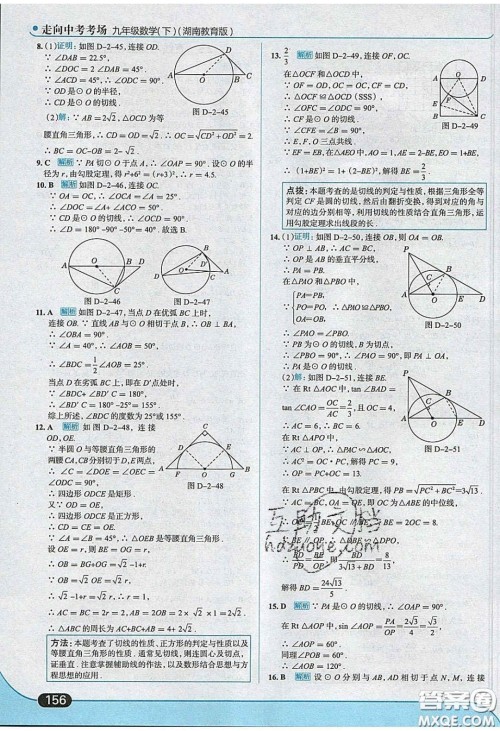 走向中考考场 九年级数学(下)(湖南教育版)
8. (1)证明: 如图 D-2-45, 连接 OD.
∵ ∠DAB = 22.5°,
∴ ∠DOC = 2∠DAC = 45°.
∵ ∠ACD = 45°, ∴ ∠ODC = 90°.
∵ OD 是 ⊙O 的半径,
∴ CD 是 ⊙O 的切线.
图 D-2-45
(2)解: ∵ AB = 2√2, △DCO 为等
腰直角三角形, ∴ CD = OD = √2. ∴ OC = √(CD² + OD²) = 2.
∴ BC = OC - OB = 2 - √2.
9. C 解析 ∵ PA 切 ⊙O 于点 A, ∴ ∠PAO = 90°. ∵ ⊙O 的半
径为 r, 由勾股定理, 得 r² + 6² = (r+3)², ∴ r = 4.5.
10. B 解析 如图 D-2-46, 连接 OC.
∵ OA = OC, ∴ ∠OCA = ∠A = 25°.
∴ ∠DOC = 2∠A = 2 × 25° = 50°.
∵ CD 是 ⊙O 的切线, ∴ ∠OCD = 90°.
∴ ∠D = 180° - 90° - 50° = 40°. 故选 B.
图 D-2-46
图 D-2-47
11. A 解析 如图 D-2-47, 当点 D 在优弧 BC 上时,
连接 OB. ∵ 直线 AB 与 ⊙O 相切于点 B, ∴ OB ⊥ BA,
∴ ∠OBA = 90°.
∵ ∠A = 40°, ∴ ∠AOB = 50°.
∴ ∠BDC = 1/2 ∠AOB = 25°.
当点 D 在劣弧 BC 上时, 即在 D′点处时,
∵ ∠BDC + ∠BD′C = 180°,
∴ ∠BD′C = 180° - 25° = 155°.
综上所述, ∠BDC 的度数为 25° 或 155°.
12. A 解析 如图 D-2-48, 连接
OD, OE.
∵ 半圆 O 与等腰直角三角形的
两腰 CA, CB 分别切于 D, E 两点,
∴ ∠C = ∠OEB = ∠OEC = ∠ODC = 90°.
图 D-2-48
∴ 四边形 ODCE 是矩形.
又 ∵ OD = OE,
∴ 四边形 ODCE 是正方形.
∴ CD = CE = OE.
∵ ∠A = ∠B = 45°, ∴ △OEB 是等腰直角三角形.
设 OE = r, 则 BE = OE = OG = r.
∴ OB = BG + OG = √2 - 1 + r.
∵ OB = √2 OE = √2 r, ∴ √2 - 1 + r = √2 r,
∴ r = 1.
∴ AC = BC = 2r = 2, AB = 2OB = 2 × (1 + √2 - 1) = 2√2.
∴ △ABC 的周长为 AC + BC + AB = 4 + 2√2.
方法: 本题考查了切线的性质, 正方形的判定与性质以及
等腰直角三角形的判定与性质. 此题综合性很强, 难度适
中, 注意掌握辅助线的作法, 以及数形结合思想与方
程思想的应用.
13. 2/3 解析 如图 D-2-49, 连接 OF, OC.
在 △OCF 和 △OCD 中,
∵ OF = OD, OC = OC, CF = CD,
∴ △OCF ≌ △OCD (SSS),
∴ ∠OFC = ∠ODC = 90°.
∴ CF 是 ⊙O 的切线.
图 D-2-49
∵ ∠CFE = ∠B = 90°,
∴ E, F, O 三点共线.
∵ EF = EB, ∴ 在 △AEO 中, AO = 1, AE = 2 - BE, EO = 1 + BE,
∴ (1 + BE)² = 1 + (2 - BE)², 解得 BE = 2/3.
点拨: 本题考查的是切线的判定与性质, 根据三角形全等
判定 CF 是圆的切线, 然后由翻折变换, 得到对应的角与
对应的边分别相等, 利用切线的性质结合直角三角形, 运
用勾股定理求出线段的长.
14. (1)证明: 如图 D-2-50, 连接 OB, 则 OA = OB.
∵ OP ⊥ AB, ∴ AC = BC.
∴ OP 是 AB 的垂直平分线.
∴ PA = PB.
在 △PAO 和 △PBO 中,
∵ PA = PB,
PO = PO, ∴ △PAO ≌ △PBO,
OA = OB,
图 D-2-50
∴ ∠PAO = ∠PBO.
∵ PB 为 ⊙O 的切线, B 为切点,
∴ ∠PBO = 90°. ∴ ∠PAO = 90°, 即 PA ⊥ OA,
∴ PA 是 ⊙O 的切线.
(2)解: 如图 D-2-51, 连接 BE.
∵ 在 Rt △AOC 中, tan ∠BAD =
tan ∠CAO = OC/AC = 2/3, 且 OC = 4,
∴ AC = 6. ∴ BC = 6.
在 Rt △APO 中, ∵ AC ⊥ OP,
∴ △PAC ∽ △AOC,
图 D-2-51
∴ AC² = OC · PC, 解得 PC = 9. ∴ OP = PC + OC = 13.
在 Rt △PBC 中, 由勾股定理, 得 PB = √(PC² + BC²) = 3√13.
∵ AC = BC, OA = OE, 即 OC 为 △ABE 的中位线,
∴ OC = 1/2 BE, OC // BE, ∴ BE = 2OC = 8.
∵ BE // OP, ∴ △DBE ∽ △DPO,
∴ BD/PD = BE/OP, 即 BD/(3√13 + BD) = 8/13,
解得 BD = 24√13/5.
15. D 解析 ∵ PA 是 ⊙O 的切线, ∴ ∠PAO = 90°.
在 Rt △AOP 中, sin ∠AOP = PA/PO = 2√3/4 = √3/2,
∴ ∠AOP = 60°.
同理 ∠BOP = 60°.
∴ ∠AOB = 120°.
16. A 解析 ∵ ⊙O 分别与 AB, AD 相切, 连接 OM, ON,
156
互助文档
hazuone.com
答案圈
MXQE.COM